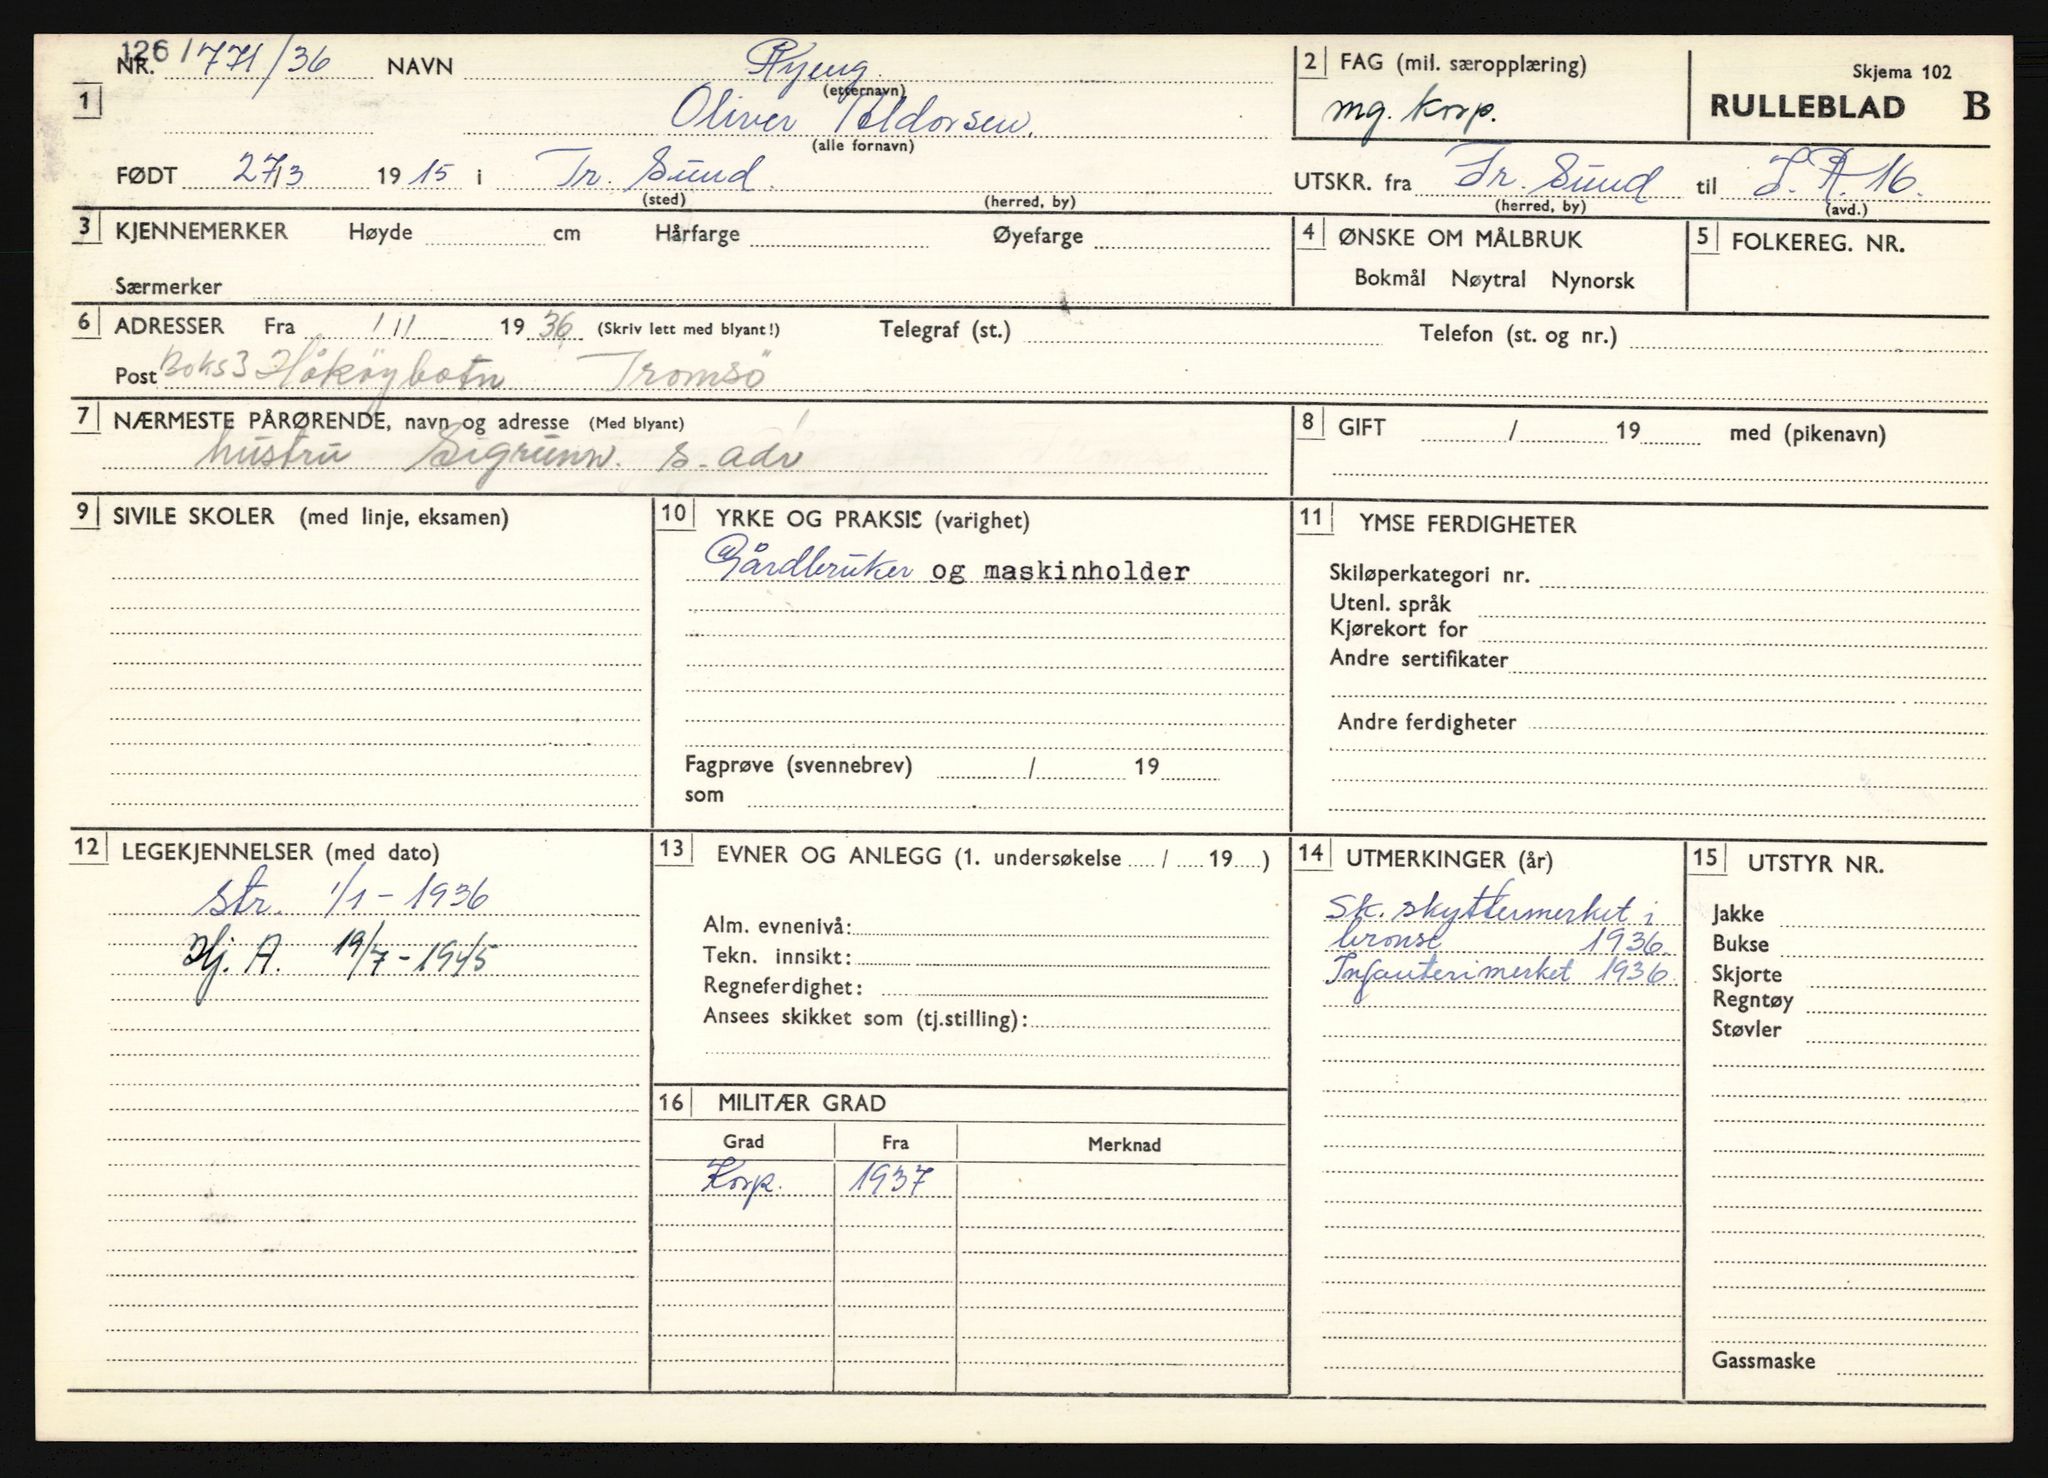 126/771/36 NR. NAVN Ryeng (etternavn)
1 Oliver Heldorsen. (alle fornavn)
2 FAG (mil. særopplæring)
mg. korp.
Skjema 102
RULLEBLAD B
FØDT 27/3 1915 i Tr. Sund. (sted) (herred, by)
UTSKR. fra Tr. Sund (herred, by) til I.R. 16. (avd.)
3 KJENNEMERKER Høyde cm Hårfarge Øyefarge
Særmerker
4 ØNSKE OM MÅLBRUK
Bokmål Nøytral Nynorsk
5 FOLKEREG. NR.
6 ADRESSER Fra 1/11 1936 (Skriv lett med blyant!) Telegraf (st.) Telefon (st. og nr.)
Post Boks 3 Håkøybotn Tromsö
7 NÆRMESTE PÅRØRENDE, navn og adresse (Med blyant)
hustru Sigrunn. s. adr
8 GIFT / 19 med (pikenavn)
9 SIVILE SKOLER (med linje, eksamen)
10 YRKE OG PRAKSIS (varighet)
Gårdbruker og maskinholder
Fagprøve (svennebrev) / 19
som
11 YMSE FERDIGHETER
Skiløperkategori nr.
Utenl. språk
Kjørekort for
Andre sertifikater
Andre ferdigheter
12 LEGEKJENNELSER (med dato)
Str. 1/1 - 1936
Hj. A. 19/7 - 1945
13 EVNER OG ANLEGG (1. undersøkelse / 19 )
Alm. evnenivå:
Tekn. innsikt:
Regneferdighet:
Ansees skikket som (tj.stilling):
14 UTMERKINGER (år)
Sk. skyttermerket i
bronse 1936.
Infanterimerket 1936.
15 UTSTYR NR.
Jakke
Bukse
Skjorte
Regntøy
Støvler
Gassmaske
16 MILITÆR GRAD
Grad Fra Merknad
Korp. 1937